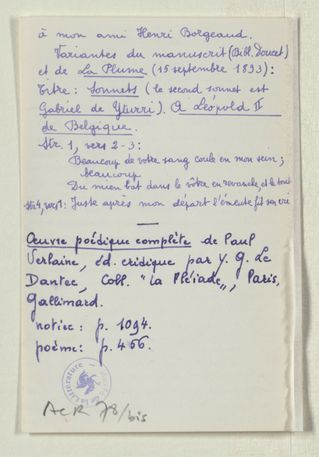 à mon ami Henri Borgeaud.
Variantes du manuscrit (Bibl. Doucet)
et de La Plume (15 septembre 1893):
titre: Sonnets (le second sonnet est
Gabriel de Yturri). A Léopold II
de Belgique.
Str. 1, vers 2-3:
Beaucoup de votre sang coule en mon sein;
beaucoup
Du mien bat dans le vôtre en revanche, et le tout
Str. 4, vers 1: Juste après mon départ l'émeute fit son cri
Œuvre poétique complète de Paul
Verlaine, éd. critique par Y. G. Le
Dantec, Coll. "La Pléiade", Paris,
Gallimard.
notice: p. 1094.
poème: p. 456.
de la Littérature
AcR 78/bis